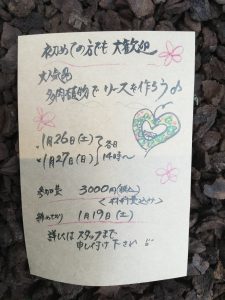 初めての方でも 大歓迎
大人気
多肉植物で リースを作ろう♪
・1月26日(土)
・1月27日(日)
各日
14時〜
参加費 3000円(税込)
<材料費込み>
締めきり 1月19日(土)
詳しくは スタッフまで
申し付け下さい